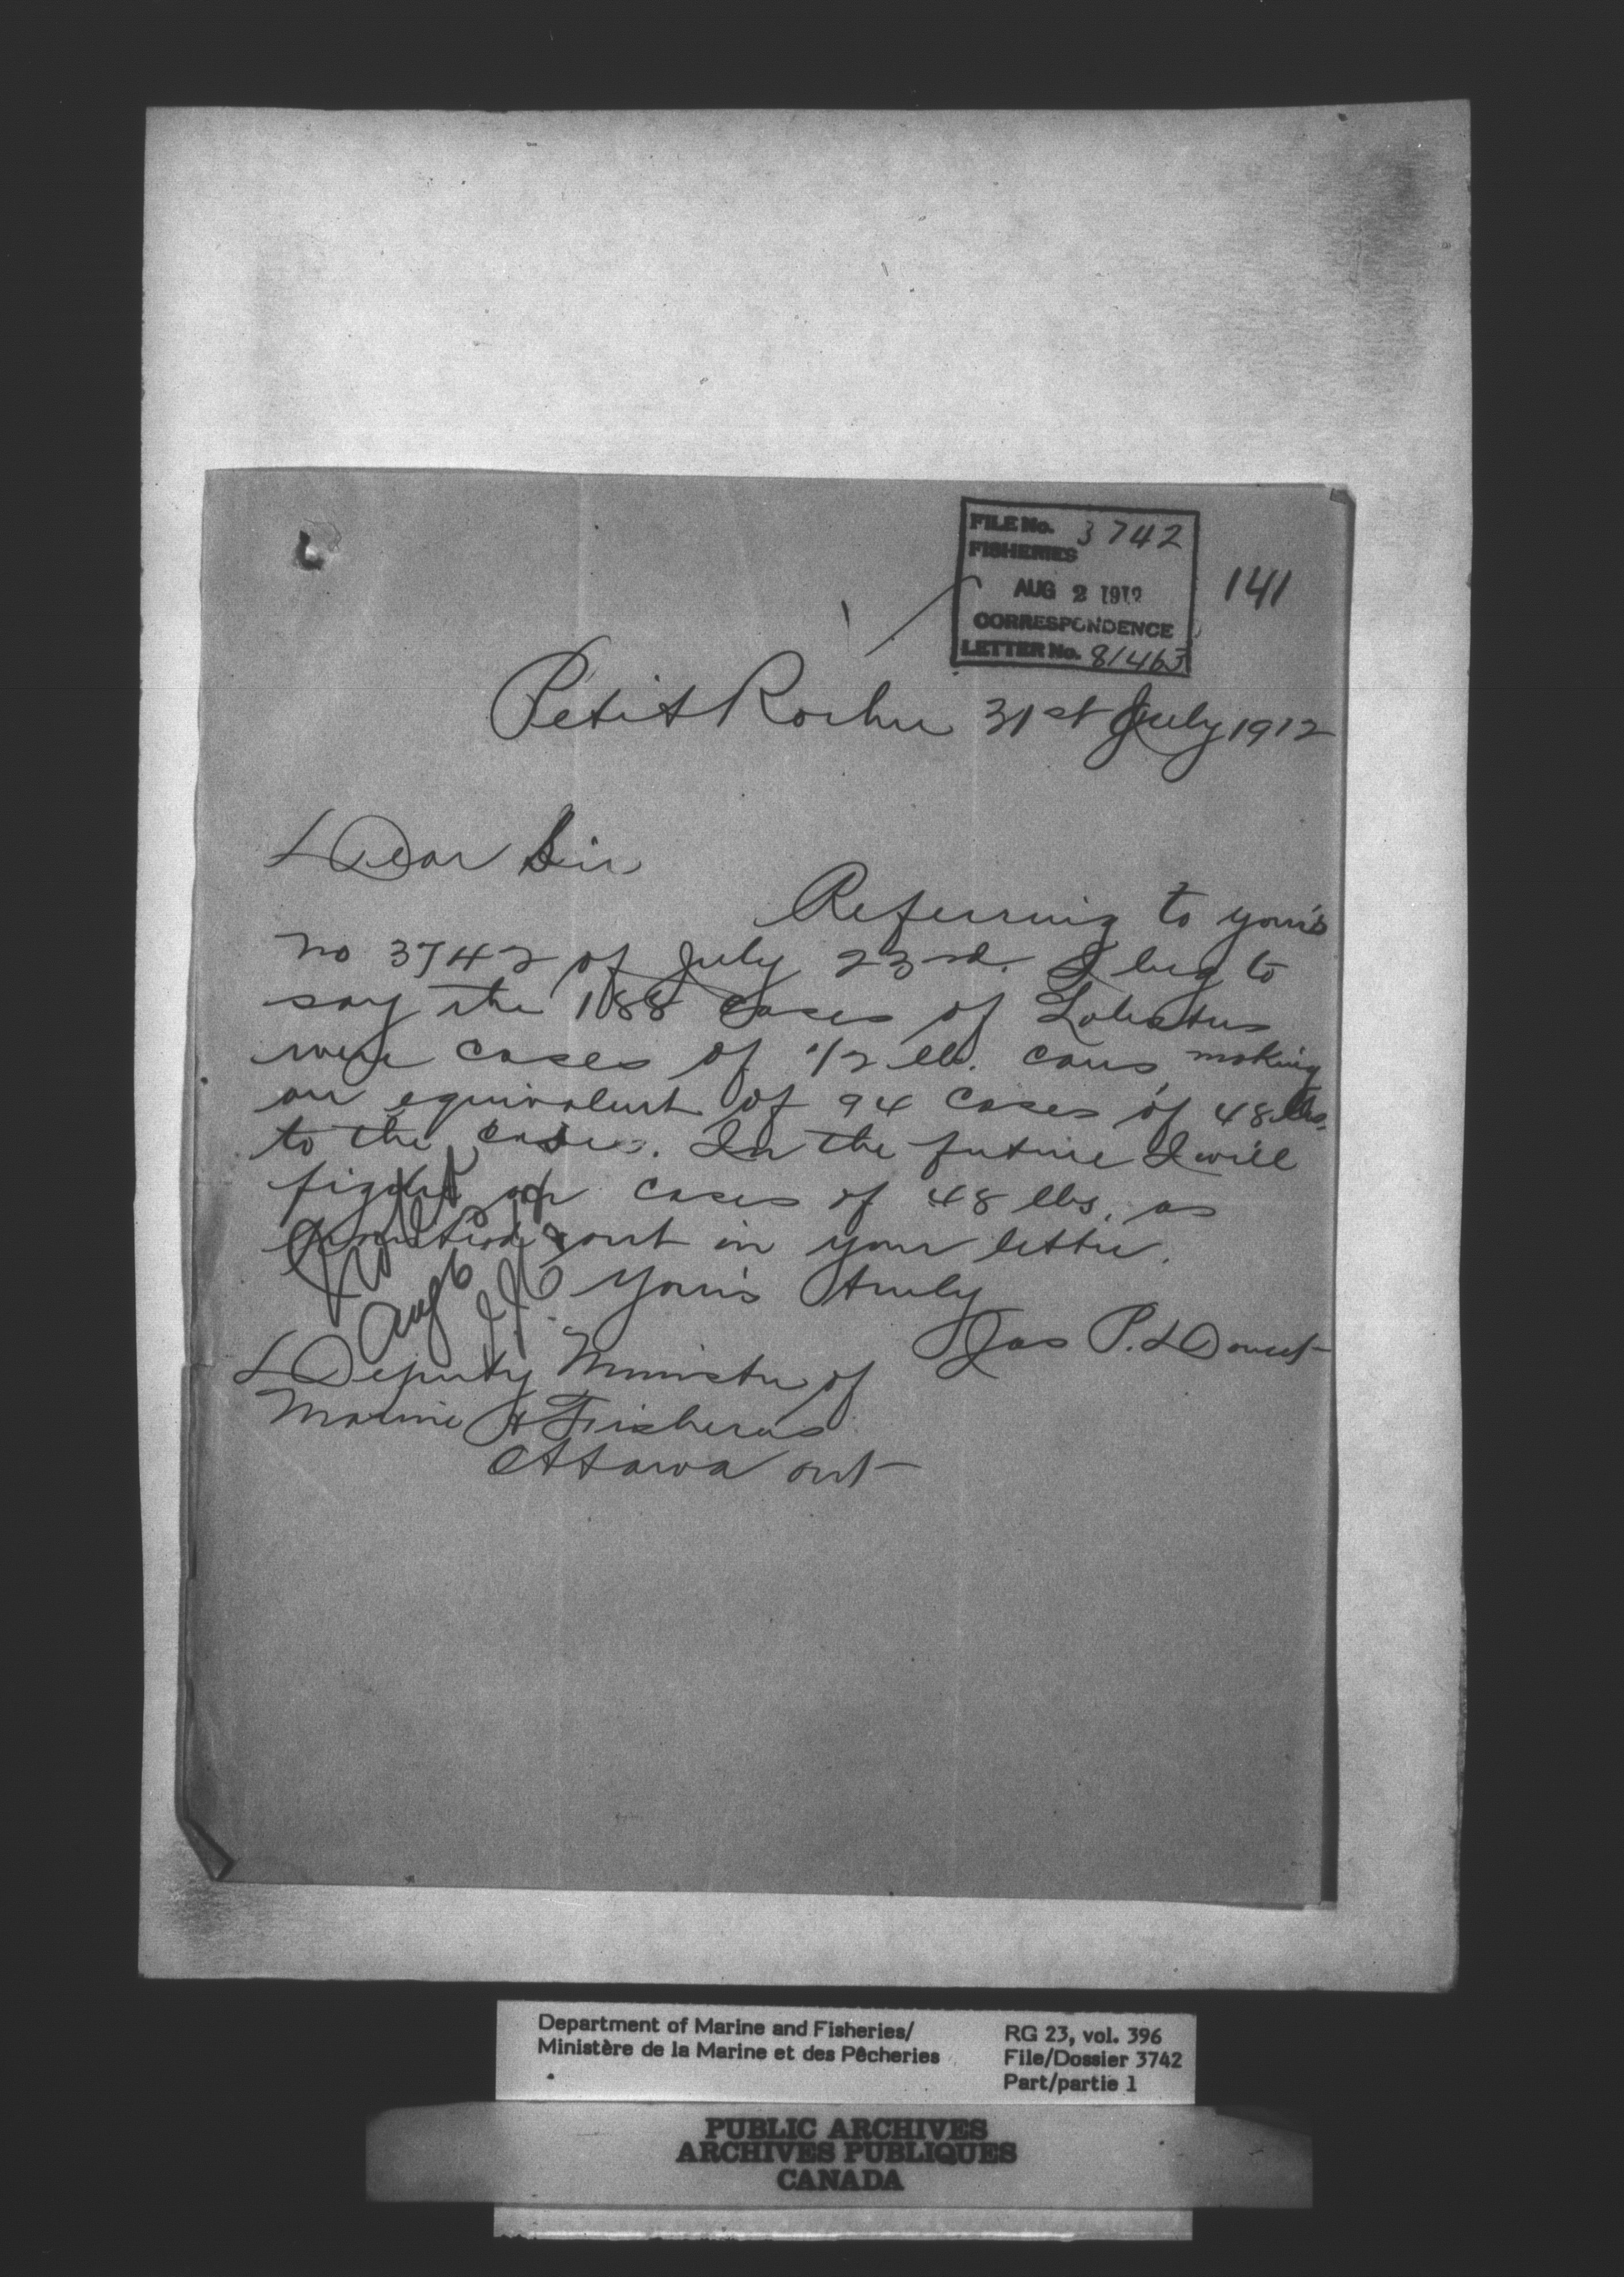 FILE No. 3742
FISHERIES
AUG 2 1912
CORRESPONDENCE
LETTER No. 81463
141
Petit Rocher 31st July 1912
Dear Sir
Referring to your's
no 3742 of July 23rd. I beg to
say the 188 cases of Lobsters
were cases of 1/2 lb. cans making
an equivalent of 94 cases of 48 lbs.
to the case. In the future I will
figure up cases of 48 lbs. as
pointed out in your letter.
Aug 6
Your's truly
Jas P. Doucet
Deputy Minister of
Marine & Fisheries
Ottawa Ont
Department of Marine and Fisheries/
Ministère de la Marine et des Pêcheries
RG 23, vol. 396
File/Dossier 3742
Part/partie 1
PUBLIC ARCHIVES
ARCHIVES PUBLIQUES
CANADA